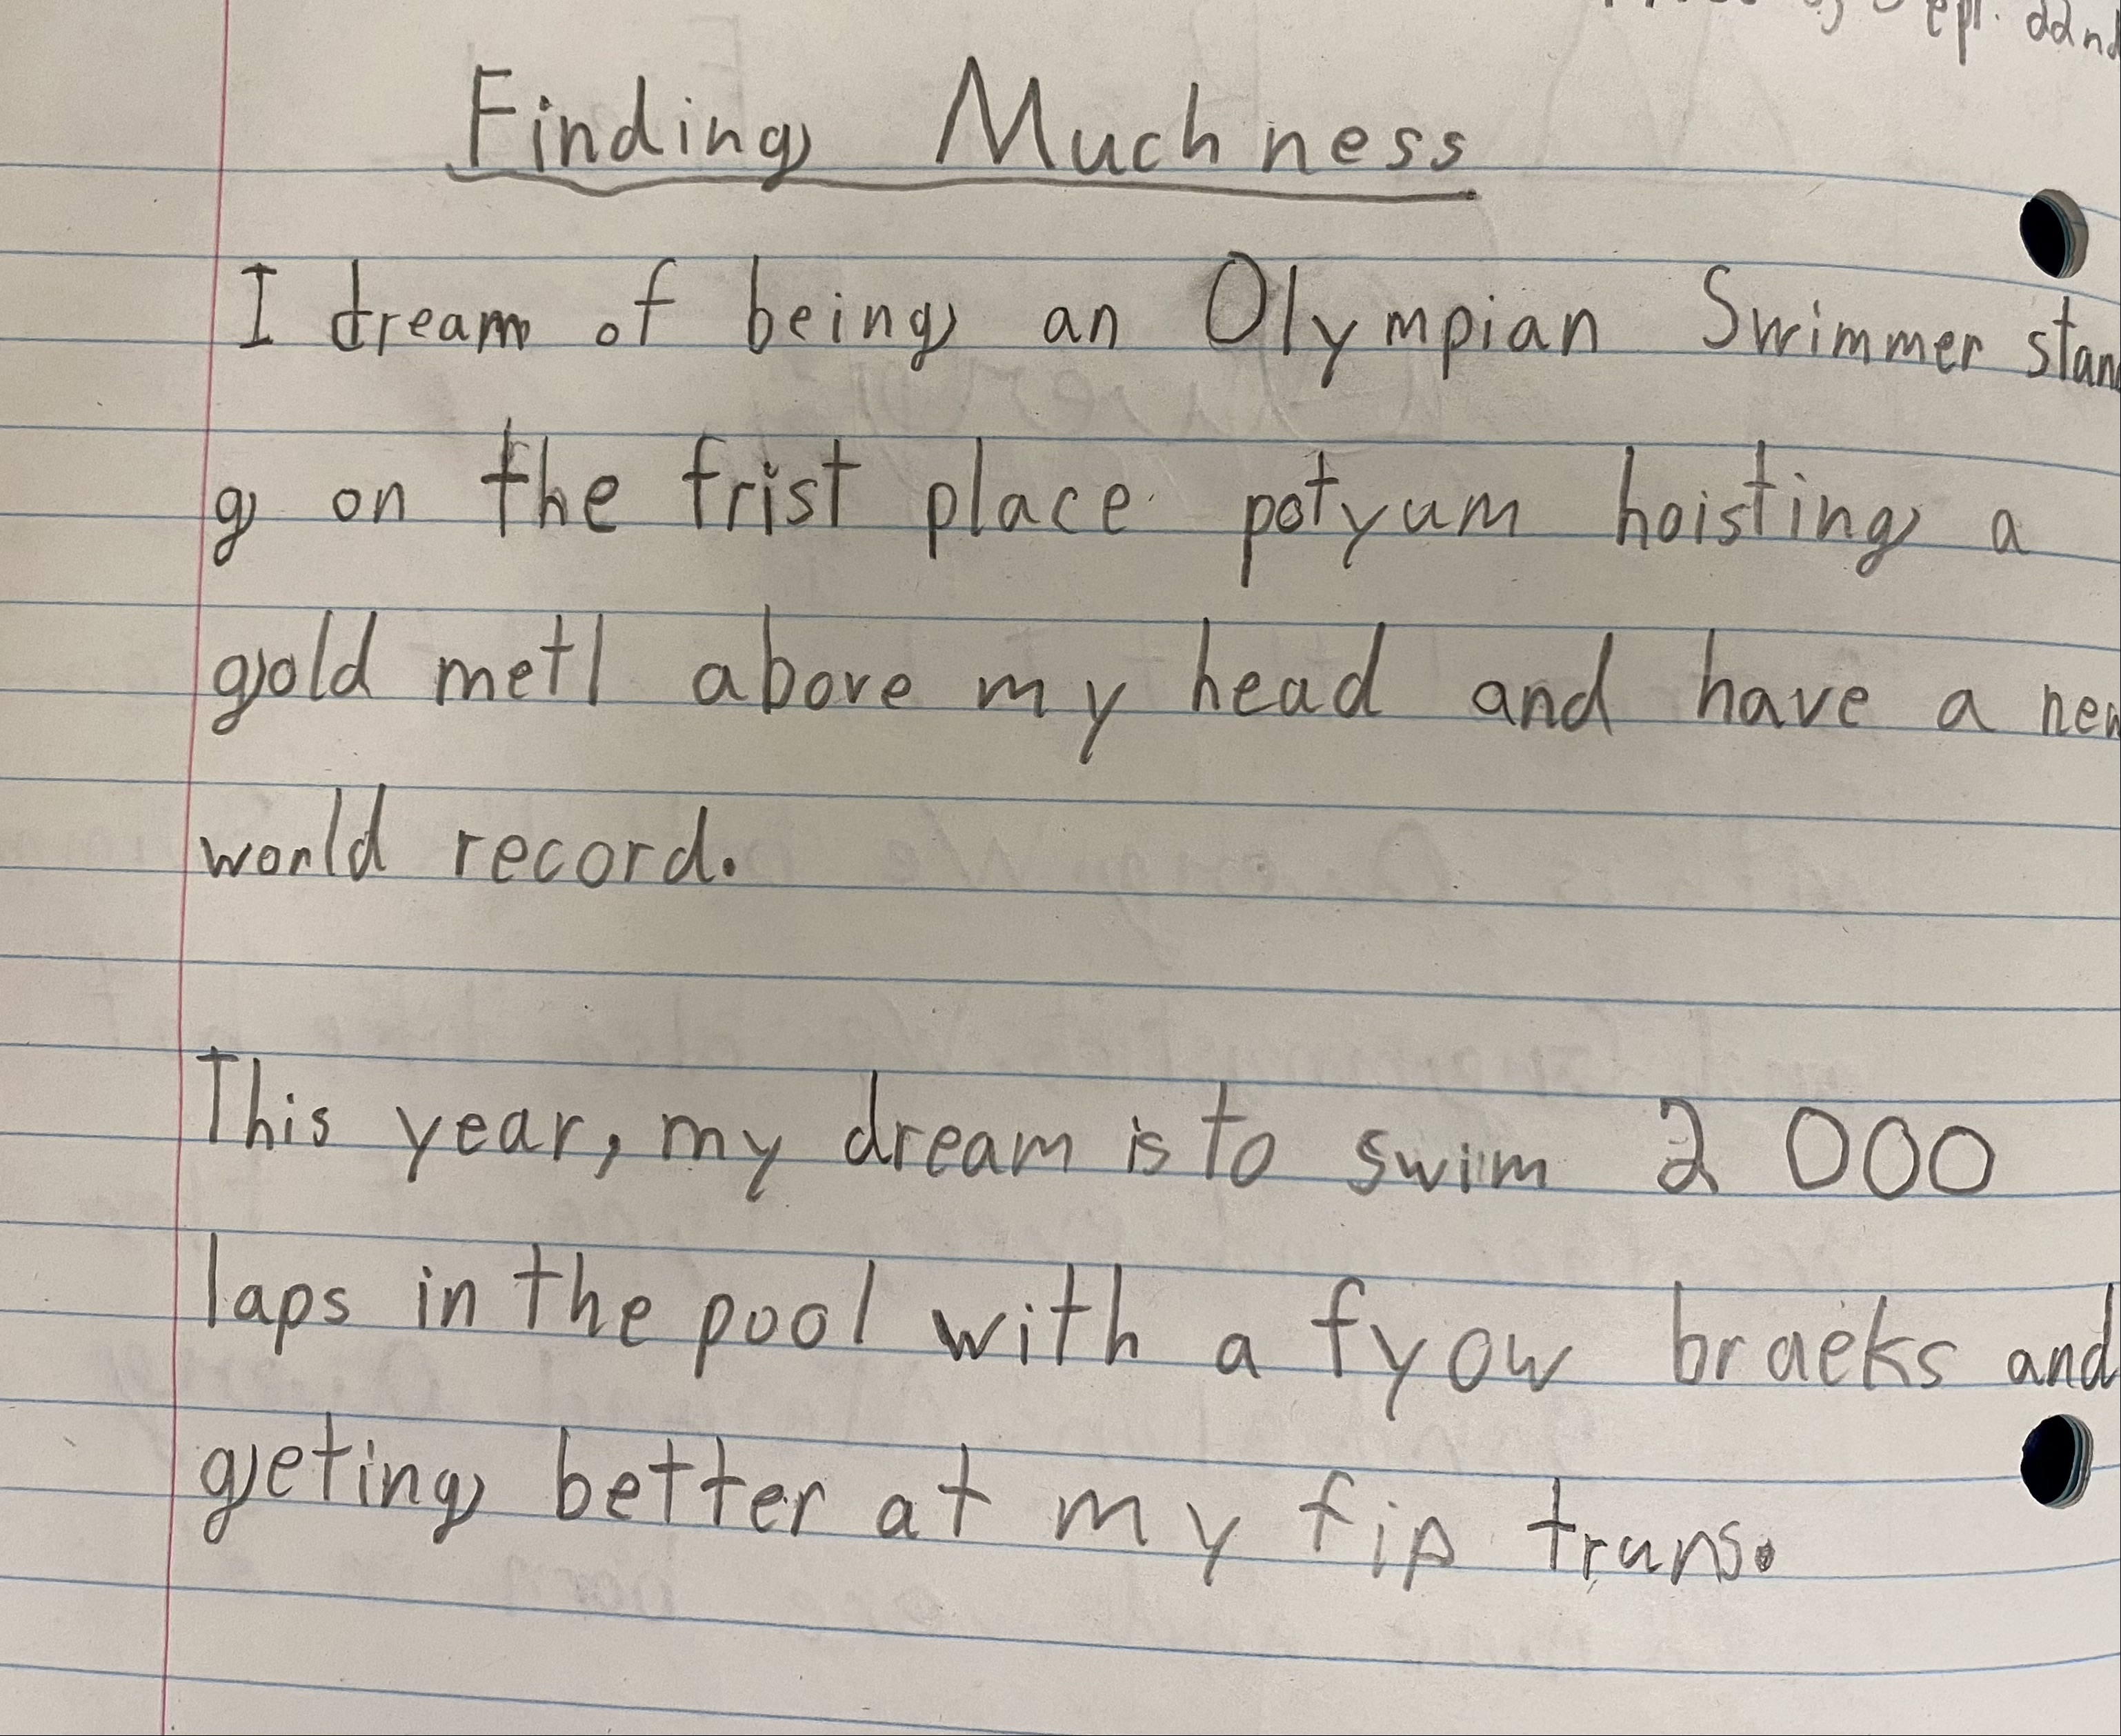 Sept. 22nd
Finding Muchness
I dream of being an Olympian Swimmer stan
g on the frist place potyum hoisting a
gold metl above my head and have a new
world record.
This year, my dream is to swim 2 000
laps in the pool with a fyow braeks and
geting better at my fip truns.